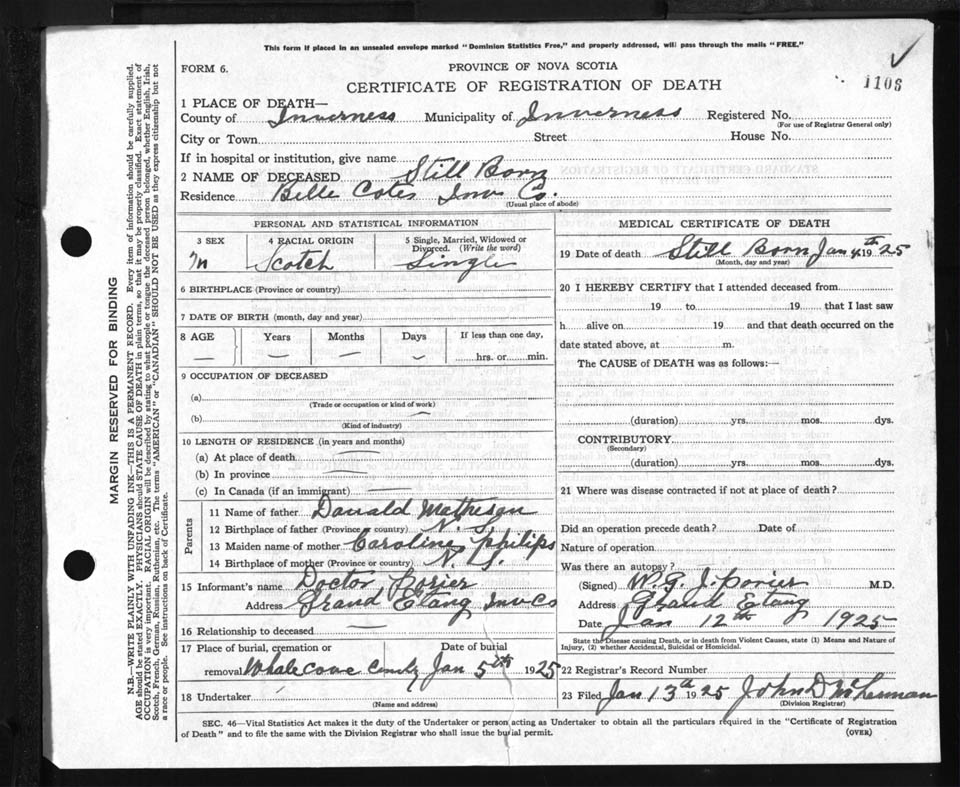 This form if placed in an unsealed envelope marked "Dominion Statistics Free," and properly addressed, will pass through the mails "FREE."
FORM 6.
PROVINCE OF NOVA SCOTIA
CERTIFICATE OF REGISTRATION OF DEATH
1106
1 PLACE OF DEATH—
County of Inverness Municipality of Inverness Registered No.
(For use of Registrar General only)
City or Town Street House No.
If in hospital or institution, give name
2 NAME OF DECEASED Still Born
Residence Belle Cote Inv Co.
(Usual place of abode)
PERSONAL AND STATISTICAL INFORMATION
3 SEX 4 RACIAL ORIGIN 5 Single, Married, Widowed or Divorced. (Write the word)
M Scotch Single
6 BIRTHPLACE (Province or country)
7 DATE OF BIRTH (month, day and year)
8 AGE Years Months Days If less than one day,
— — — — hrs. or min.
9 OCCUPATION OF DECEASED
(a)
(Trade or occupation or kind of work)
(b) —
(Kind of industry)
10 LENGTH OF RESIDENCE (in years and months)
(a) At place of death
(b) In province
(c) In Canada (if an immigrant)
Parents
11 Name of father Donald Matheson
12 Birthplace of father (Province or country) N. S.
13 Maiden name of mother Caroline Philips
14 Birthplace of mother (Province or country) N. S.
15 Informant's name Doctor
Address Grand Etang Inv Co
16 Relationship to deceased —
17 Place of burial, cremation or removal Date of burial
Whale cove Jan 5th 1925
18 Undertaker
(Name and address)
MEDICAL CERTIFICATE OF DEATH
19 Date of death Still Born Jan 4th 1925
(Month, day and year)
20 I HEREBY CERTIFY that I attended deceased from
19 to 19 that I last saw
h alive on 19 and that death occurred on the
date stated above, at m.
The CAUSE of DEATH was as follows:—
(duration) yrs. mos. dys.
CONTRIBUTORY
(Secondary)
(duration) yrs. mos. dys.
21 Where was disease contracted if not at place of death?
Did an operation precede death? Date of
Nature of operation
Was there an autopsy?
(Signed) W. G. J. M.D.
Address Grand Etang
Date Jan 12th 1925
State the Disease causing Death, or in death from Violent Causes, state (1) Means and Nature of Injury, (2) whether Accidental, Suicidal or Homicidal.
22 Registrar's Record Number
23 Filed Jan 13th 1925 John D
(Division Registrar)
SEC. 46—Vital Statistics Act makes it the duty of the Undertaker or person acting as Undertaker to obtain all the particulars required in the "Certificate of Registration
of Death" and to file the same with the Division Registrar who shall issue the burial permit.
(OVER)
MARGIN RESERVED FOR BINDING
N.B.—WRITE PLAINLY WITH UNFADING INK—THIS IS A PERMANENT RECORD. Every item of information should be carefully supplied.
AGE should be stated EXACTLY. PHYSICIANS should STATE CAUSE OF DEATH in plain terms, so that it may be properly classified. Exact statement of
OCCUPATION is very important. RACIAL ORIGIN will be described by stating to what people or tongue the deceased person belonged, whether English, Irish,
Scotch, French, German, Russian, Ruthenian, etc. The terms "AMERICAN" or "CANADIAN" SHOULD NOT BE USED as they express citizenship but not
a race or people. See instructions on back of Certificate.